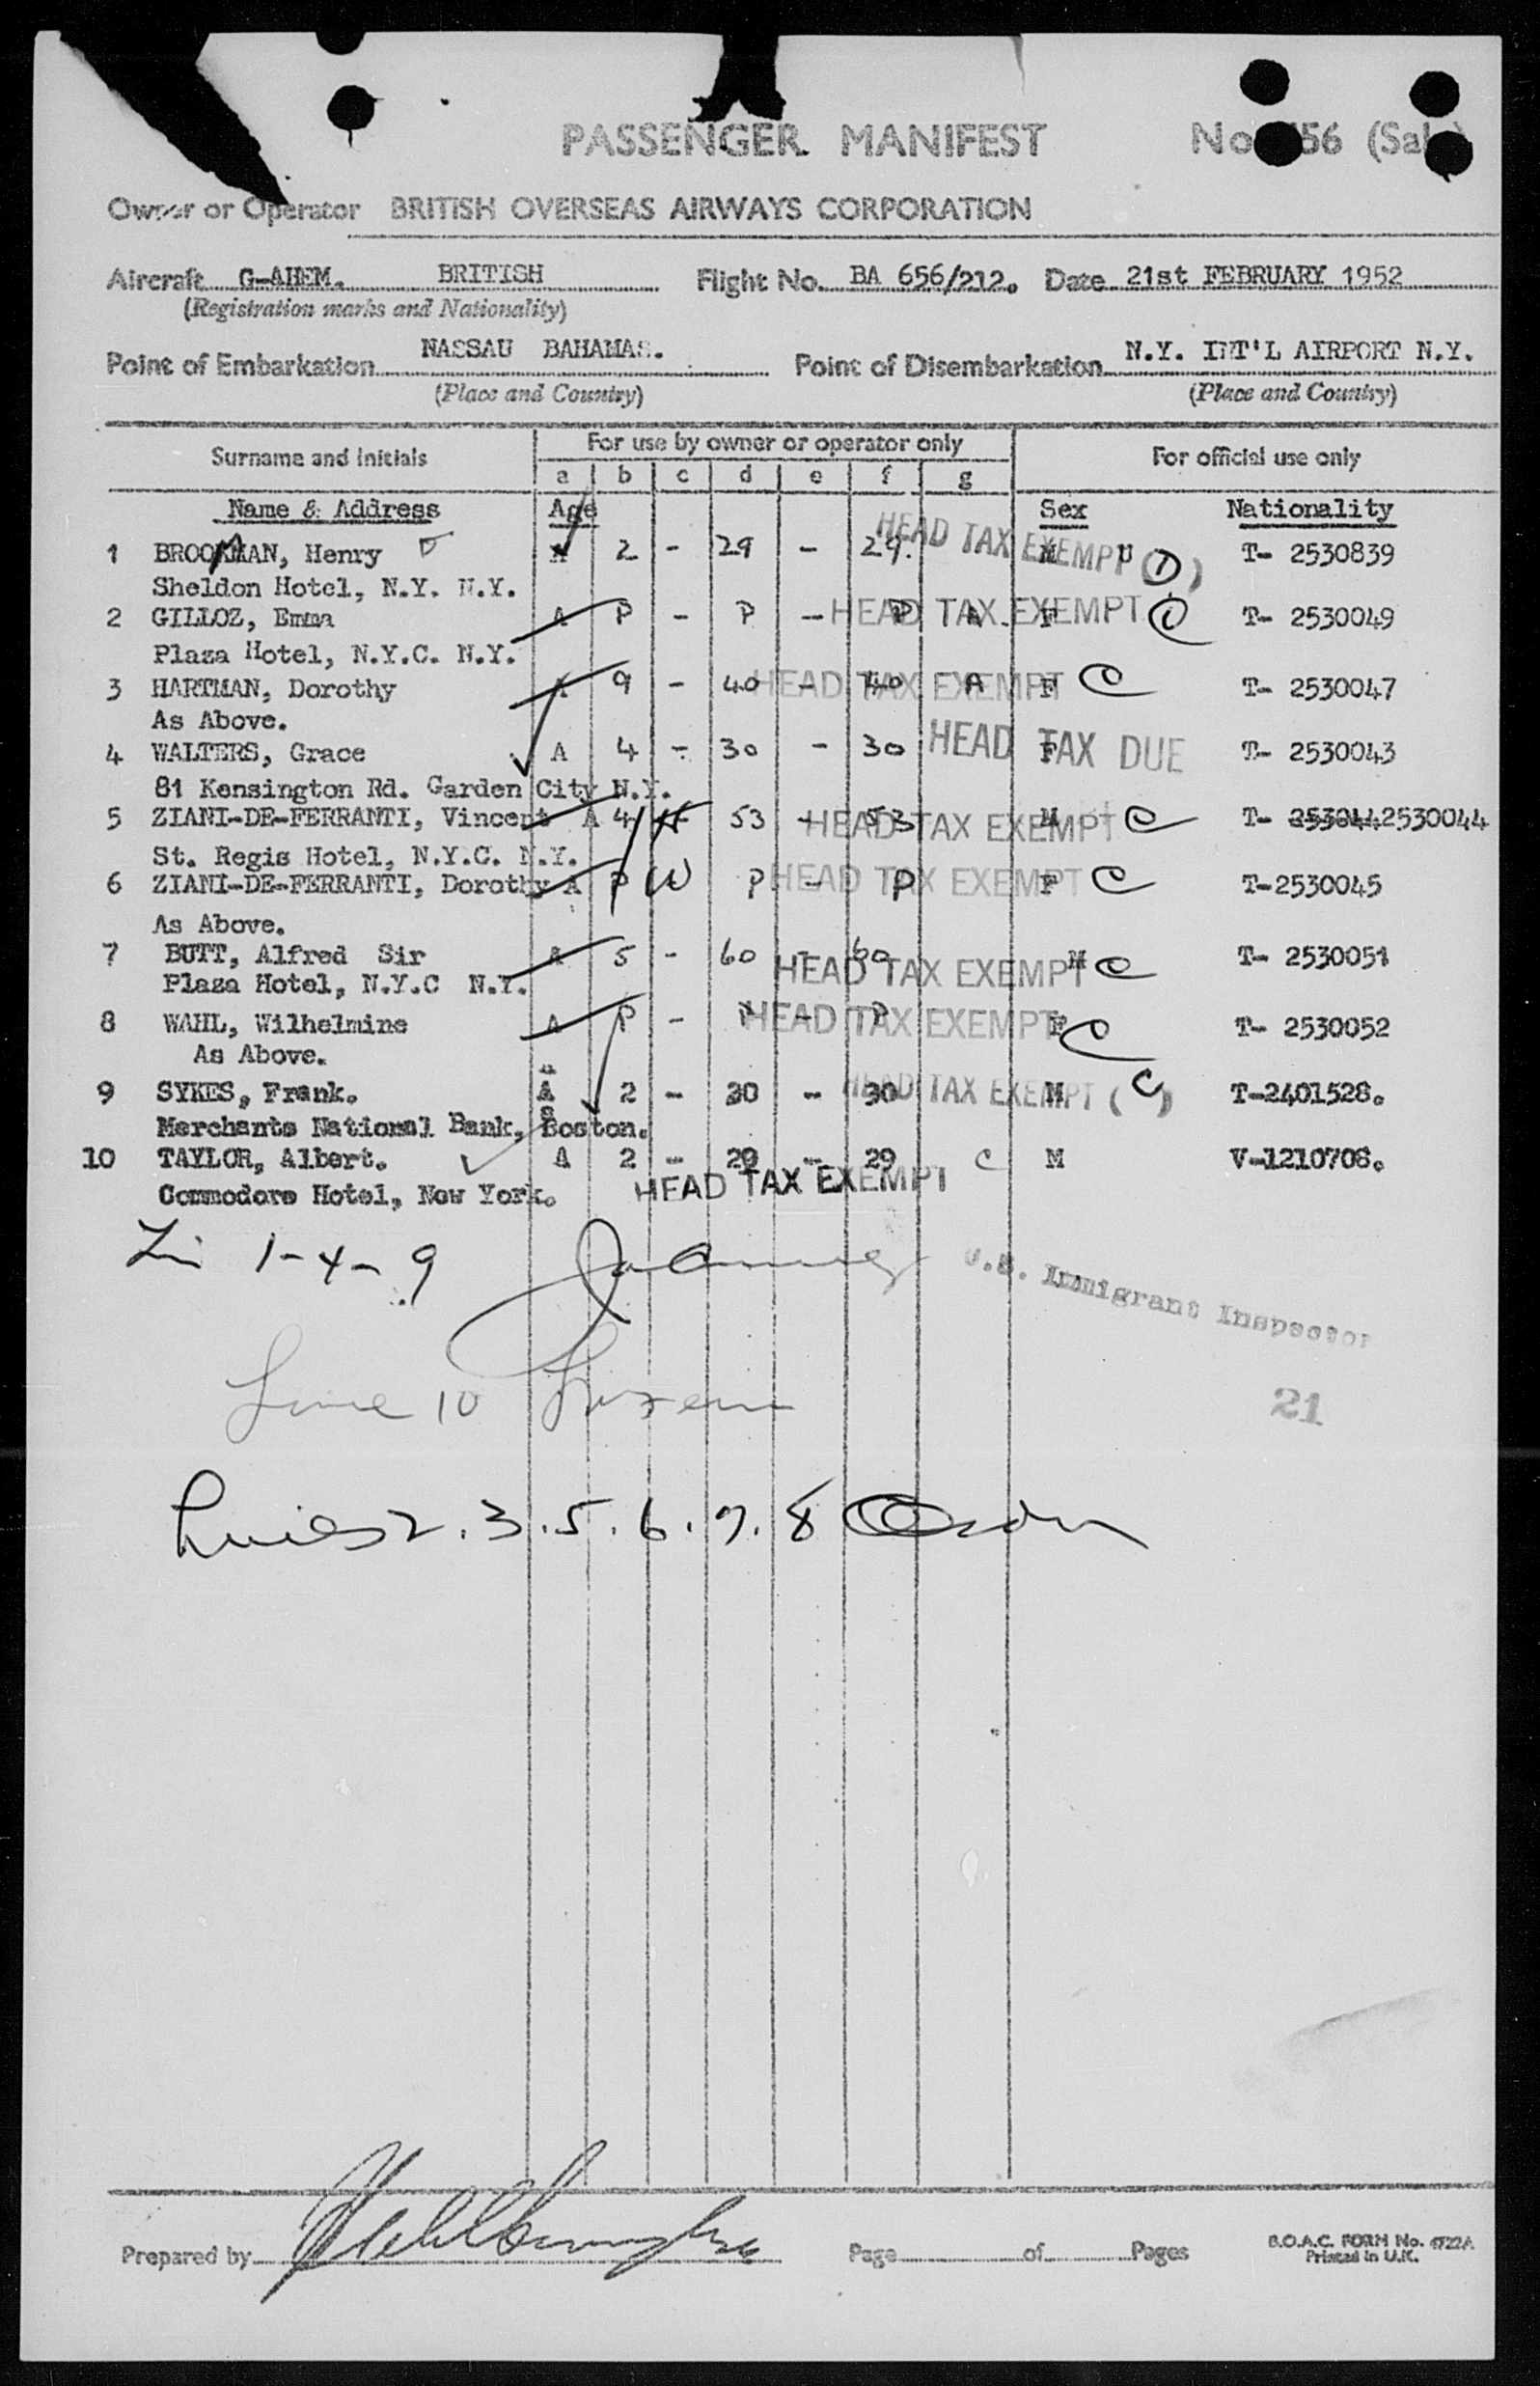 PASSENGER MANIFEST No 56 (Sal
Owner or Operator BRITISH OVERSEAS AIRWAYS CORPORATION
Aircraft G-AHEM. BRITISH Flight No. BA 656/212. Date 21st FEBRUARY 1952
(Registration marks and Nationality)
Point of Embarkation NASSAU BAHAMAS. Point of Disembarkation N.Y. INT'L AIRPORT N.Y.
(Place and Country) (Place and Country)
Surname and initials For use by owner or operator only For official use only
a b c d e f g
Name & Address Age Sex Nationality
1 Henry 2 - 29 - 29. HEAD TAX EXEMPT M U (D) T- 2530839
Sheldon Hotel, N.Y. N.Y.
2 GILLOZ, Emma A P - P - P A F HEAD TAX EXEMPT C T- 2530049
Plaza Hotel, N.Y.C. N.Y.
3 HARTMAN, Dorothy A 9 - 40 - 40 A F HEAD TAX EXEMPT C T- 2530047
As Above.
4 WALTERS, Grace A 4 - 30 - 30 F HEAD TAX DUE T- 2530043
81 Kensington Rd. Garden City N.Y.
5 ZIANI-DE-FERRANTI, Vincent A 4 H 53 - 53 M HEAD TAX EXEMPT C T- 2530442530044
St. Regis Hotel, N.Y.C. N.Y.
6 ZIANI-DE-FERRANTI, Dorothy A P W P - P F HEAD TAX EXEMPT C T-2530045
As Above.
7 BUTT, Alfred Sir A 5 - 60 - 60 M HEAD TAX EXEMPT C T- 2530051
Plaza Hotel, N.Y.C N.Y.
8 WAHL, Wilhelmine A P - P - P F HEAD TAX EXEMPT C T- 2530052
As Above.
9 SYKES, Frank. A 2 - 30 - 30 M HEAD TAX EXEMPT (C) T-2401528.
Merchants National Bank, Boston.
10 TAYLOR, Albert. A 2 - 29 - 29 C M V-1210708.
Commodore Hotel, New York. HEAD TAX EXEMPT
1-4-9
U.S. Immigrant Inspector
Line 10
21
Lines 2.3.5.6.7.8
Prepared by Page of Pages
B.O.A.C. FORM No. 4722A
Printed in U.K.